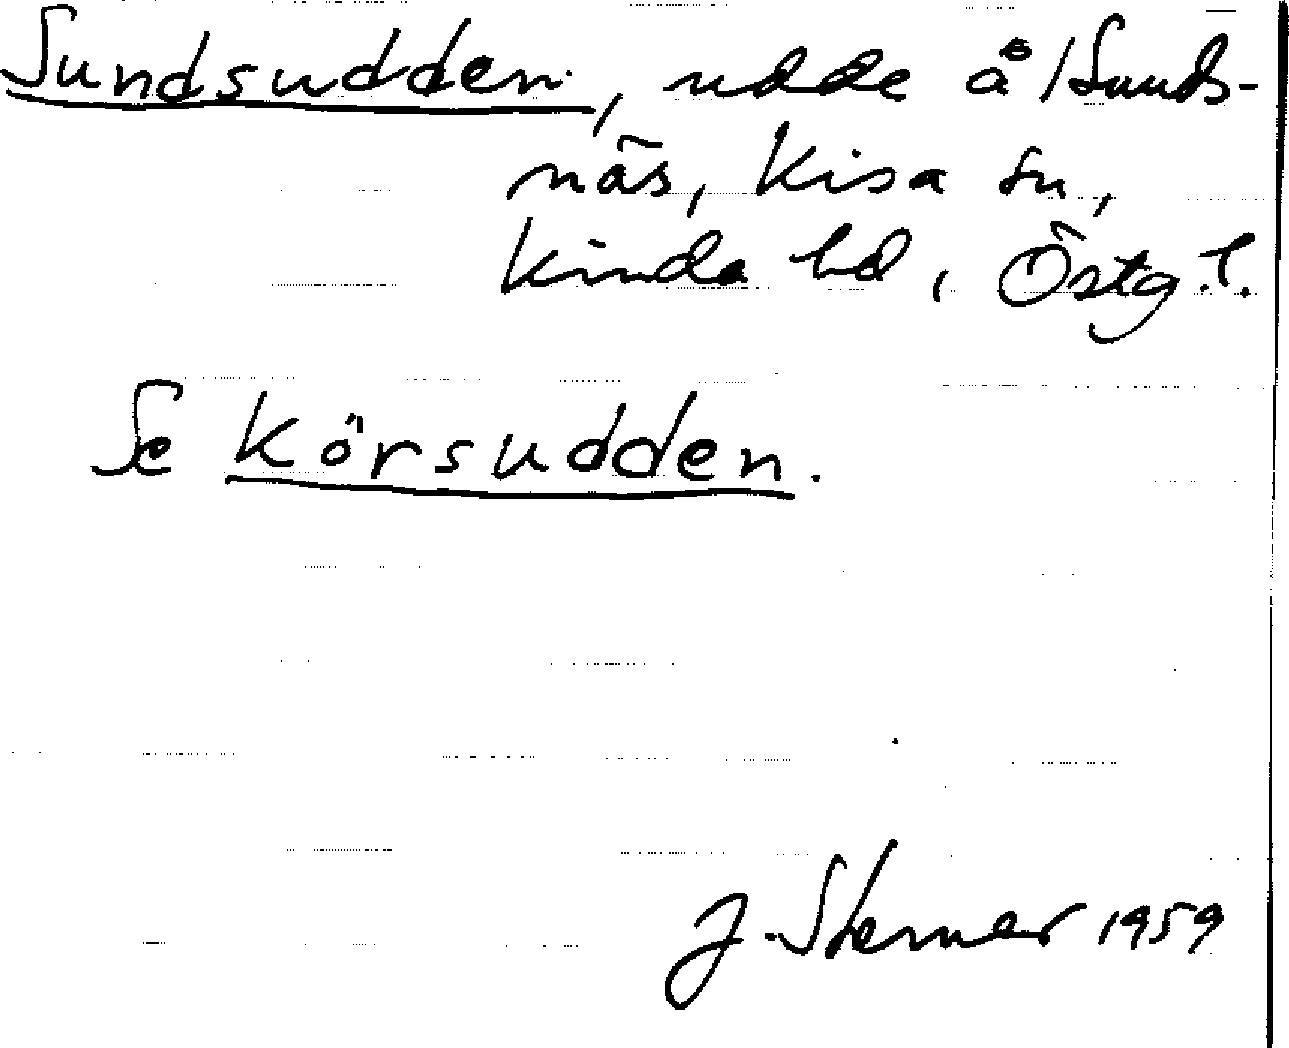 Sundsudden, udde å /Sunds-
näs, Kisa sn,
Kinda hd, Östg.l.
Se Körsudden.
J. Sterner 1959